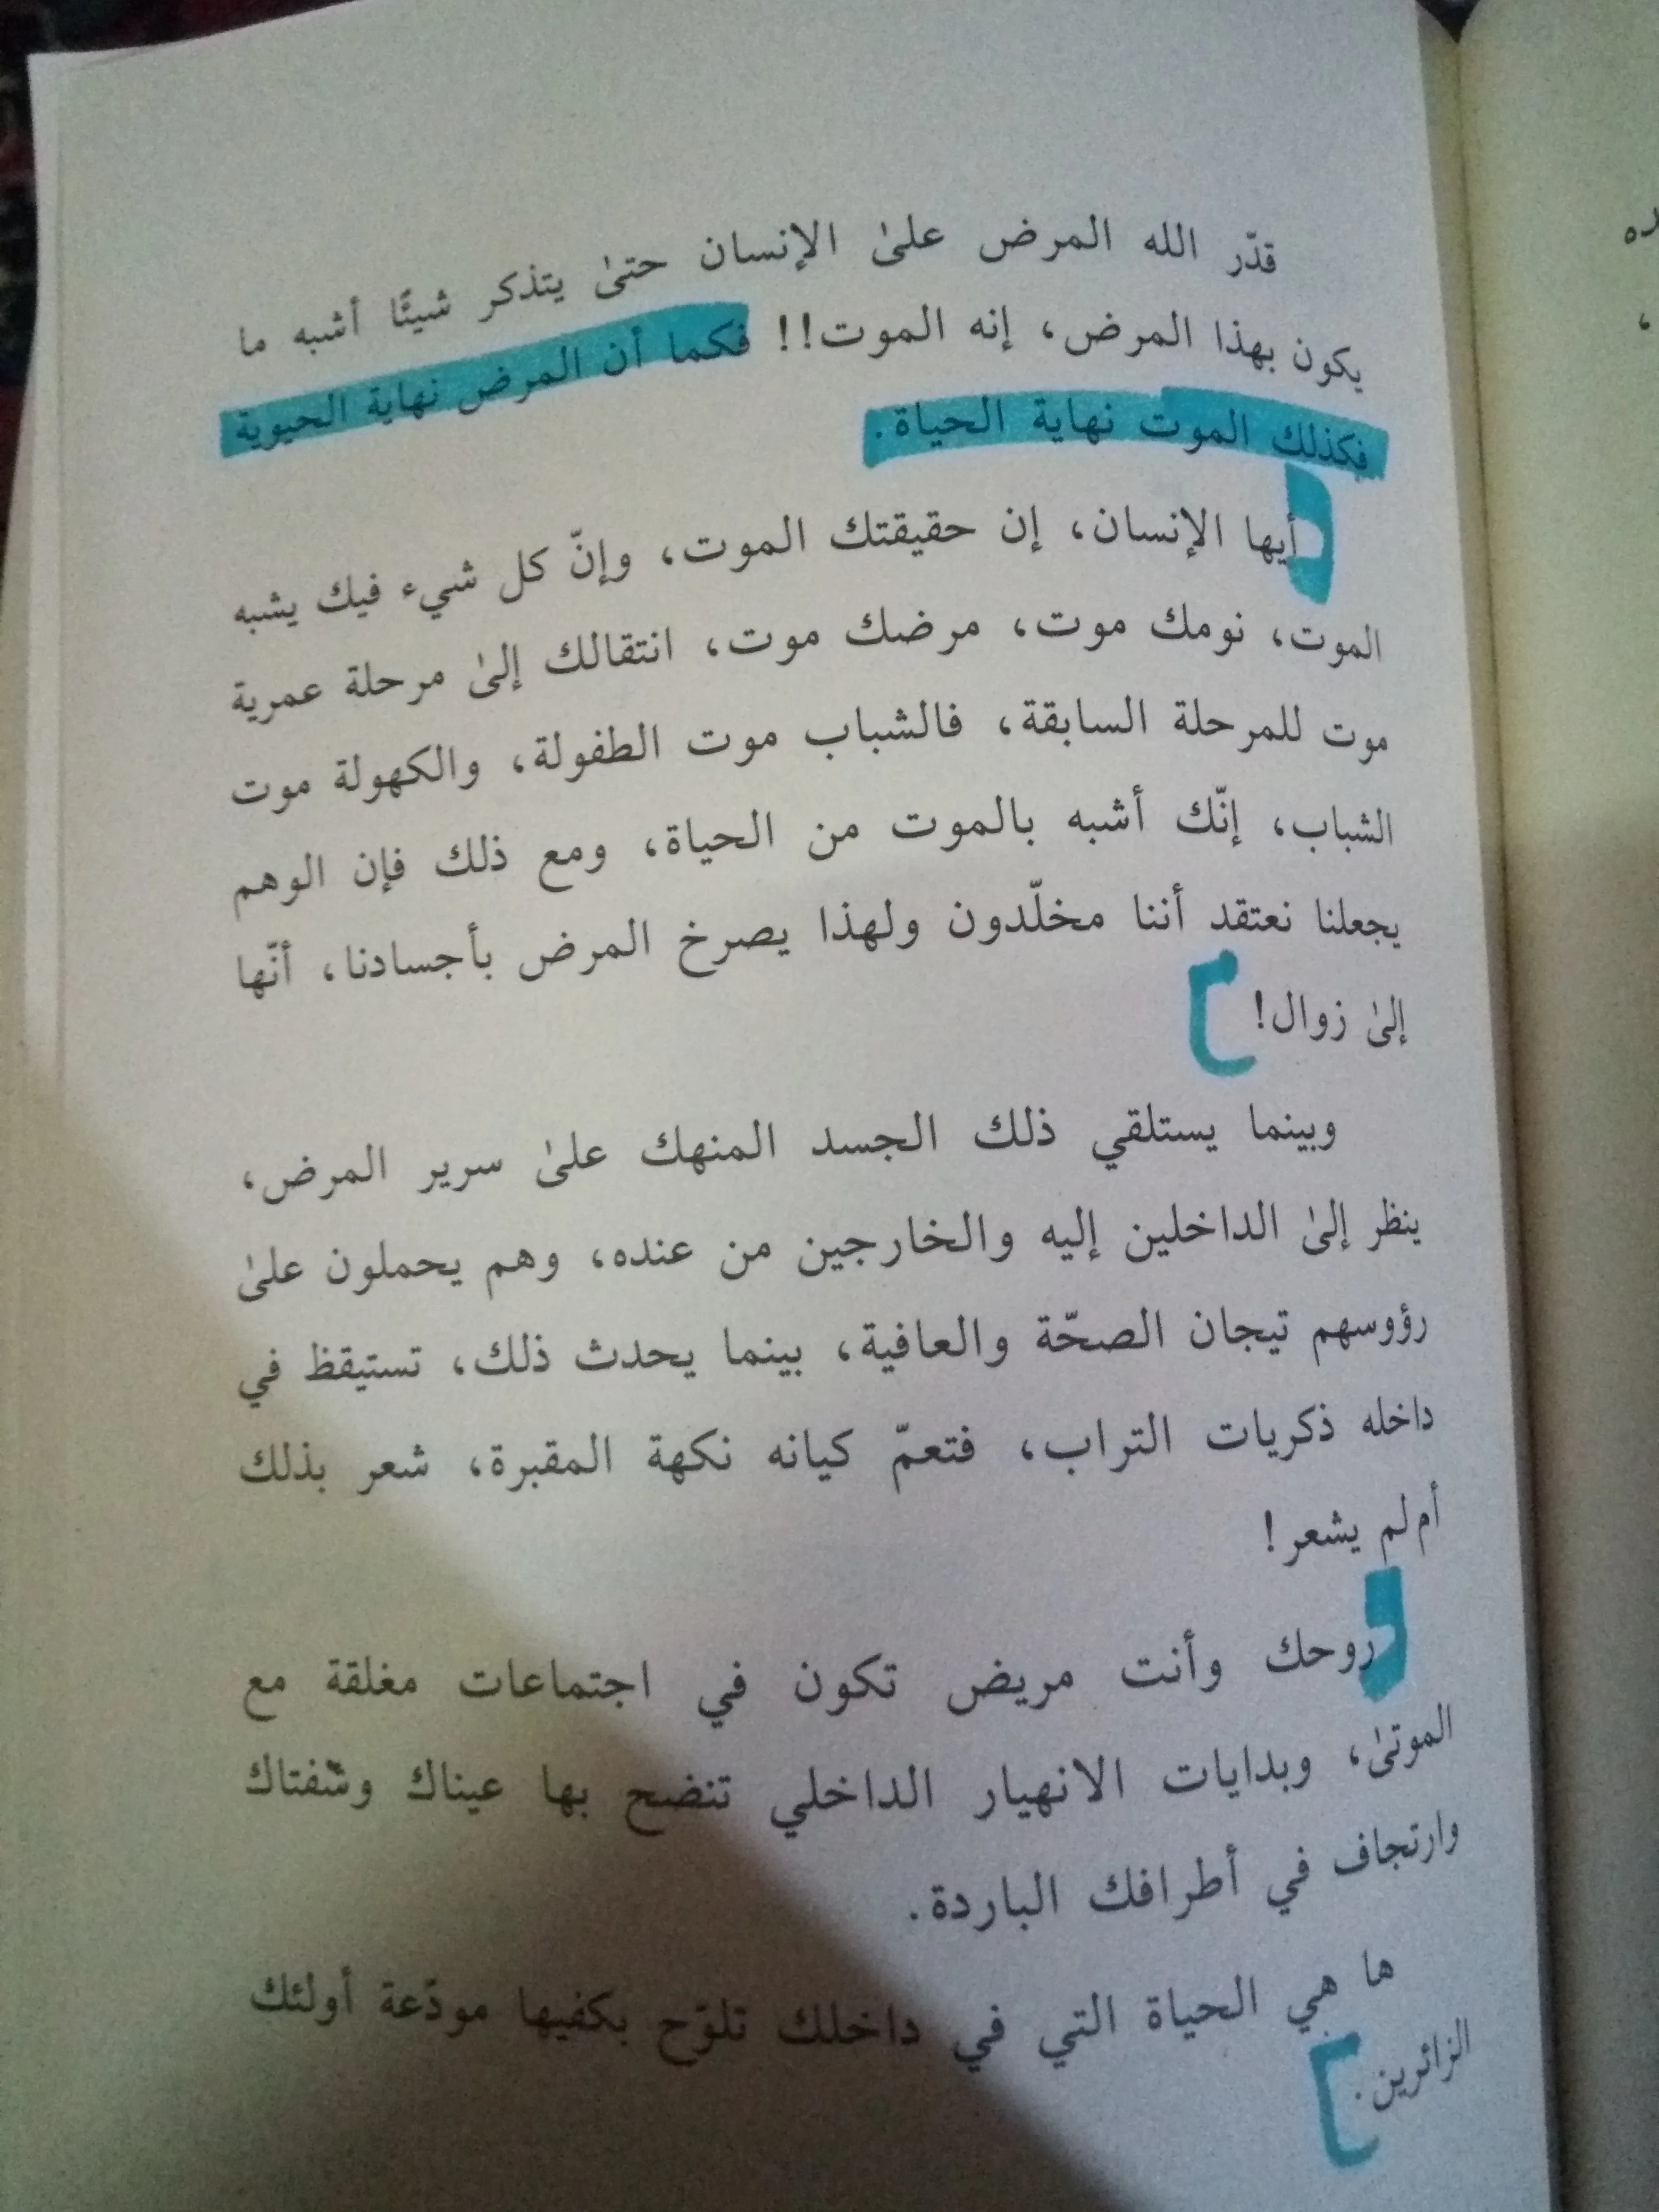 قدّر الله المرض علىٰ الإنسان حتىٰ يتذكر شيئًا أشبه ما
يكون بهذا المرض، إنه الموت!! فكما أن المرض نهاية الحيوية
فكذلك الموت نهاية الحياة.
أيها الإنسان، إن حقيقتك الموت، وإنّ كل شيء فيك يشبه
الموت، نومك موت، مرضك موت، انتقالك إلىٰ مرحلة عمرية
موت للمرحلة السابقة، فالشباب موت الطفولة، والكهولة موت
الشباب، إنّك أشبه بالموت من الحياة، ومع ذلك فإن الوهم
يجعلنا نعتقد أننا مخلّدون ولهذا يصرخ المرض بأجسادنا، أنّها
إلىٰ زوال!
وبينما يستلقي ذلك الجسد المنهك علىٰ سرير المرض،
ينظر إلىٰ الداخلين إليه والخارجين من عنده، وهم يحملون علىٰ
رؤوسهم تيجان الصحّة والعافية، بينما يحدث ذلك، تستيقظ في
داخله ذكريات التراب، فتعمّ كيانه نكهة المقبرة، شعر بذلك
أم لم يشعر!
روحك وأنت مريض تكون في اجتماعات مغلقة مع
الموتىٰ، وبدايات الانهيار الداخلي تنضح بها عيناك وشفتاك
وارتجاف في أطرافك الباردة.
ها هي الحياة التي في داخلك تلوّح بكفيها مودّعة أولئك
الزائرين.